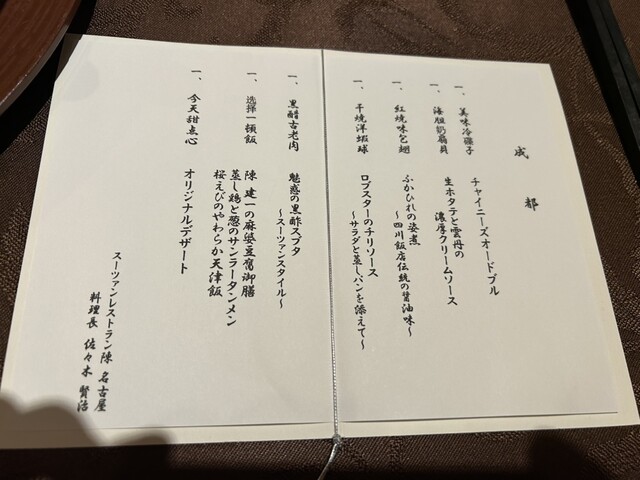 成都
一、美味冷碟子 チャイニーズオードブル
一、海胆奶扇貝 生ホタテと雲丹の
濃厚クリームソース
一、紅焼味包翅 ふかひれの姿煮
～四川飯店伝統の醤油味～
一、干焼洋蝦球 ロブスターのチリソース
～サラダと蒸しパンを添えて～
一、黒醋古老肉 魅惑の黒酢スブタ
～スーツァンスタイル～
一、选择一顿飯 陳 建一の麻婆豆腐御膳
蒸し鶏と葱のサンラータンメン
桜えびのやわらか天津飯
一、今天甜点心 オリジナルデザート
スーツァンレストラン陳 名古屋
料理長 佐々木 賢治